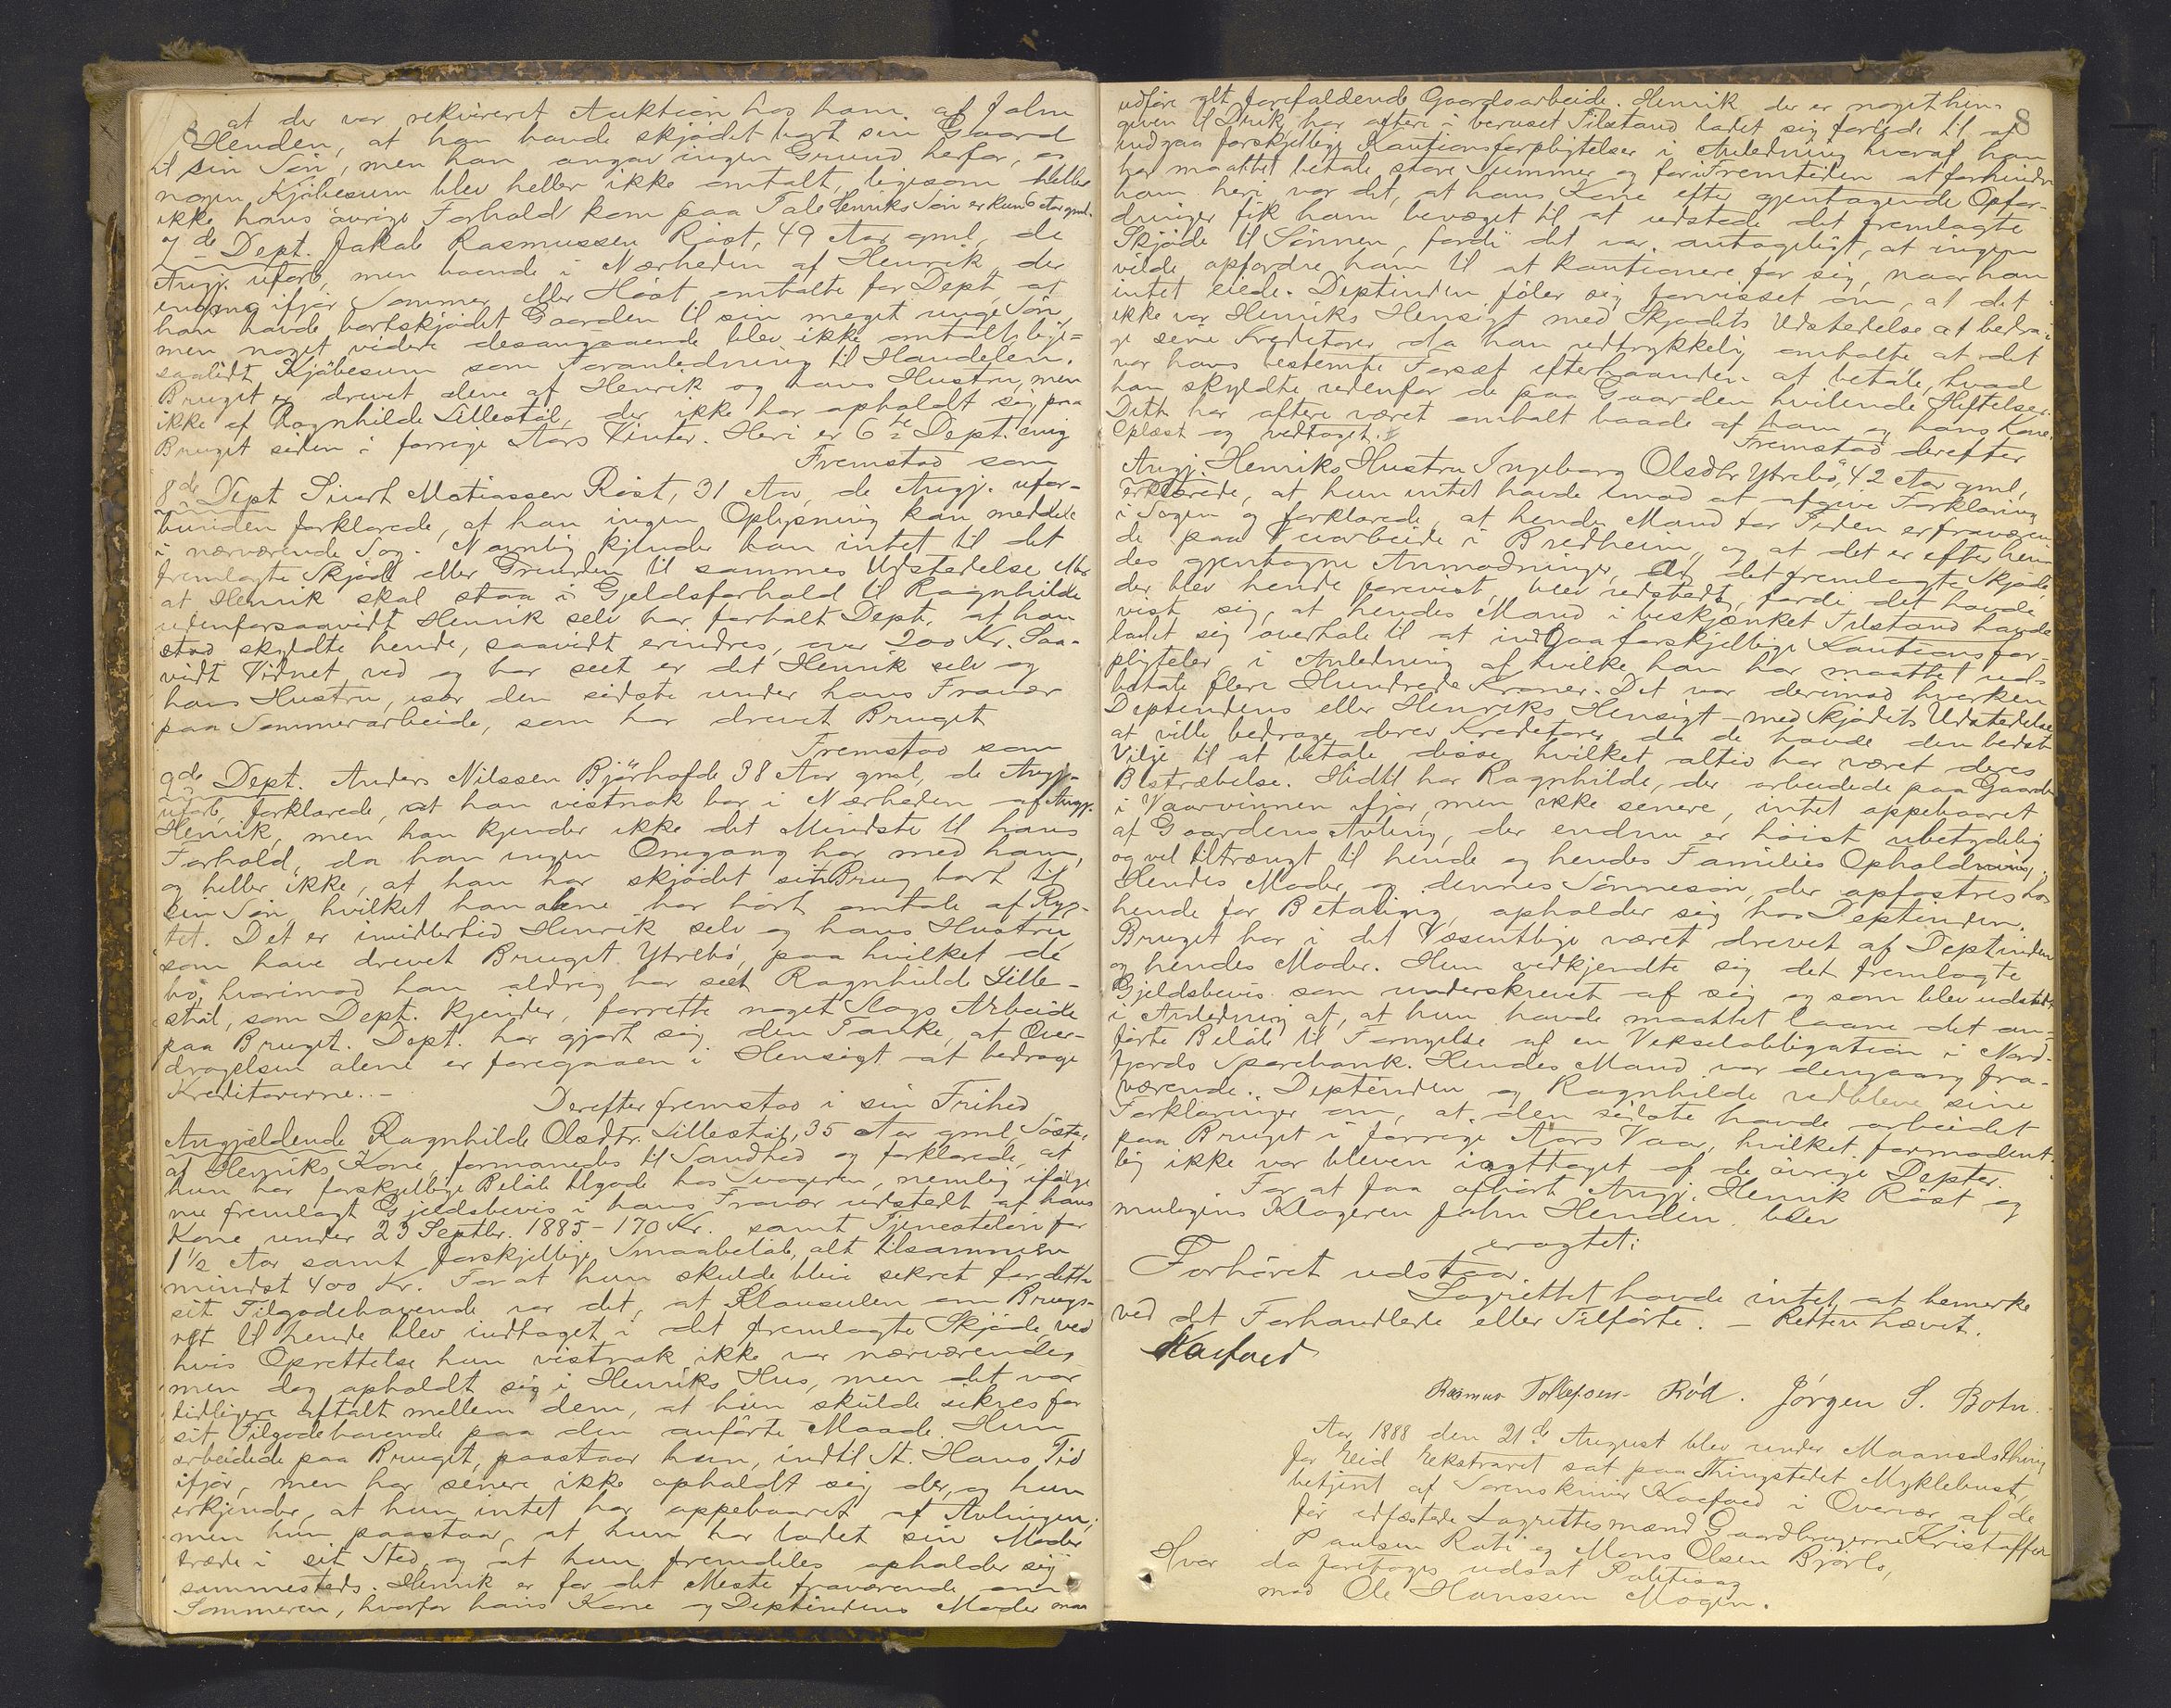 at der var rekvireret Auktion hos ham af John
Henden, at han havde skjödet bort sin Gaard
til sin Sön, men han angav ingen Grund herfor, og
nogen Kjöbesum blev heller ikke omtalt, ligesom heller
ikke hans övrige Forhold kom paa Tale Henriks Sön er kun 6 Aar gml.
7de Dept. Jakob Rasmussen Röst, 49 Aar gml, de
Angj. uforb, men boende i Nærheden af Henrik, der
engang ifjor Sommer eller Höst omtalte for Dept, at
han havde bortskjödet Gaarden til sin meget unge Sön,
men noget videre desangaaende blev ikke omtalt lige=
saalidt Kjöbesum som Foranledning til Handelen.
Bruget er drevet alene af Henrik og hans Hustru, men
ikke af Ragnhilde Lillestöl, der ikke har opholdt sig paa
Bruget siden i forrige Aars Vinter. Heri er 6te Dept. enig
Fremstod som
8de Dept Sivert Matiassen Röst, 31 Aar, de Angj. ufor-
bunden forklarede, at han ingen Oplysning kan meddele
i nærværende Sag. Navnlig kjender han intet til det
fremlagte Skjöde eller Grunden til sammes Udstedelse eller
at Henrik skal staa i Gjeldsforhold til Ragnhilde
udenforsaavidt Henrik selv har fortalt Dept. at han
stod skyldte hende, saavidt erindres, over 200 Kr. Saa-
vidt Vidnet ved og har seet er det Henrik selv og
hans Hustru, især den sidste under hans Fravær
paa Sommerarbeide, som har drevet Bruget
Fremstod som
9de Dept. Anders Nilssen Björhofde 38 Aar gml, de Angj.
uforb, forklarede, at han vistnok bor i Nærheden af Angj.
Henrik, men han kjender ikke det Mindste til hans
Forhold, da han ingen Omgang har med ham,
og heller ikke, at han har skjödet sit Brug bort til
sin Sön, hvilket han alene har hört omtale af Ryg-
tet. Det er imidlertid Henrik selv og hans Hustru,
som have drevet Bruget Ytrebö, paa hvilket de
bo, hvorimod han aldrig har seet Ragnhilde Lille-
stöl, som Dept. kjender, forrette noget Slags Arbeide
paa Bruget. Dept. har gjort sig den Tanke, at Over-
dragelsen alene er foregaaen i Hensigt at bedrage
Kreditorerne. -
Derefter fremstod i sin Frihed
Angjældende Ragnhilde Olsdtr. Lillestöl, 35 Aar gml, Söster
af Henriks Kone, formanedes til Sandhed og forklarede, at
hun har forskjellige Belöb tilgode hos Svogeren, nemlig ifölge
nu fremlagt Gjeldsbevis i hans Fravær udstedt af hans
Kone under 23 Septbr. 1885 - 170 Kr. samt Tjenestelön for
1½ Aar samt forskjellige Smaabelöb, alt tilsammen
mindst 400 Kr. For at hun skulde blive sikret for dette
sit Tilgodehavende var det, at Klausulen om Brugs-
ret til hende blev indtaget i det fremlagte Skjöde, ved
hvis Oprettelse hun vistnok ikke var nærværende,
men dog opholdt sig i Henriks Hus, men det var
tidligere aftalt mellem dem, at hun skulde sikres for
sit Tilgodehavende paa den anförte Maade. Hun
arbeidede paa Bruget, paastaar hun, indtil St. Hans Tid
ifjor, men har senere ikke opholdt sig der, og hun
erkjender, at hun intet har oppebaaret af Avlingen;
men hun paastaar, at hun har ladet sin Moder
træde i sit Sted, og at hun fremdeles opholder sig
sammesteds. Henrik er for det Meste fraværende om
Sommeren, hvorfor hans Kone og Deptindens Moder maa
8
udföre alt forefaldende Gaardsarbeide. Henrik der er noget hen-
given til Druk, har oftere i beruset Tilstand ladet sig forlede til at
indgaa forskjellige Kautionsforpligtelser i Anledning hvoraf han
har maattet betale store Summer og for i Fremtiden at forhindre
ham heri var det, at hans Kone efter gjentagende Opfor-
dringer fik ham bevæget til at udstede det fremlagte
Skjöde til Sönnen, fordi det var antageligt, at ingen
vilde opfordre ham til at kautionere for sig, naar han
intet eiede. Deptinden föler sig forvisset om, at det
ikke var Henriks Hensigt med Skjödets Udstedelse at bedra-
ge sine Kreditorer da han udtrykkelig omtalte at det
var hans bestemte Forsæt efterhaanden at betale, hvad
han skyldte udenfor de paa Gaarden hvilende Heftelser.
Dette har oftere været omtalt baade af ham og hans Kone.
Oplæst og vedtaget.
Fremstod derefter
Angj. Henriks Hustru Ingeborg Olsdtr Ytrebö, 42 Aar gml,
erklærede, at hun intet havde imod at afgive Forklaring
i Sagen og forklarede, at hendes Mand for Tiden er fraværen-
de paa Veiarbeide i Bredheim, og at det er efter hen-
des gjentagne Anmodninger, at det fremlagte Skjöde,
der blev hende forevist, blev udstedt, fordi det havde
vist sig, at hendes Mand i beskjænket Tilstand havde
ladet sig overtale til at indgaa forskjellige Kautionsfor-
pligtelser, i Anledning af hvilke han har maattet ud-
betale flere Hundrede Kroner. Det var derimod hverken
Deptindens eller Henriks Hensigt - med Skjödets Udstedelse
at ville bedrage deres Kreditorer, da de havde den bedste
Vilje til at betale disse hvilket altid har været deres
Bestræbelse. Hidtil har Ragnhilde, der arbeidede paa Gaarden
i Vaarvinnen ifjor, men ikke senere, intet oppebaaret
af Gaardens Avling, der endnu er höist ubetydelig
og vel tiltrængt til hende og hendes Families Ophold
Hendes Moder og dennes Sönnesön, der opfostres hos
hende for Betaling, opholder sig hos Deptinden.
Bruget har i det Væsentlige været drevet af Deptinden
og hendes Moder. Hun vedkjendte sig det fremlagte
Gjeldsbevis som underskrevet af sig og som blev udstedt
i Anledning af, at hun havde maattet laane det an-
förte Belöb til Fornyelse af en Vekselobligation i Nord-
fjords Sparebank. Hendes Mand var dengang fra-
værende. Deptinden og Ragnhilde vedbleve sine
Forklaringer om, at den sidste havde arbeidet
paa Bruget i forrige Aars Vaar, hvilket formodent-
lig ikke var bleven iagttaget af de övrige Depter.
For at faa afhört Angj. Henrik Röst og
muligens Klageren John Henden blev
eragtet:
Forhöret udstaar.
Lagrettet havde intet at bemerke
ved det Forhandlede eller Tilförte. - Retten hævet.
Koefoed
Rasmus Tollefsen Röd. Jörgen S. Botn.
Aar 1888 den 21de August blev under Maanedsthing
for Eid Ekstraret sat paa Thingstedet Myklebust,
betjent af Sorenskriver Koefoed i Overvær af de
för edfæstede Lagrettesmænd Gaardbrugerne Kristoffer
Paulsen Rati og Mons Olsen Bjørlo,
Hvor da foretoges udsat Politisag
mod Ole Hanssen Mogen.